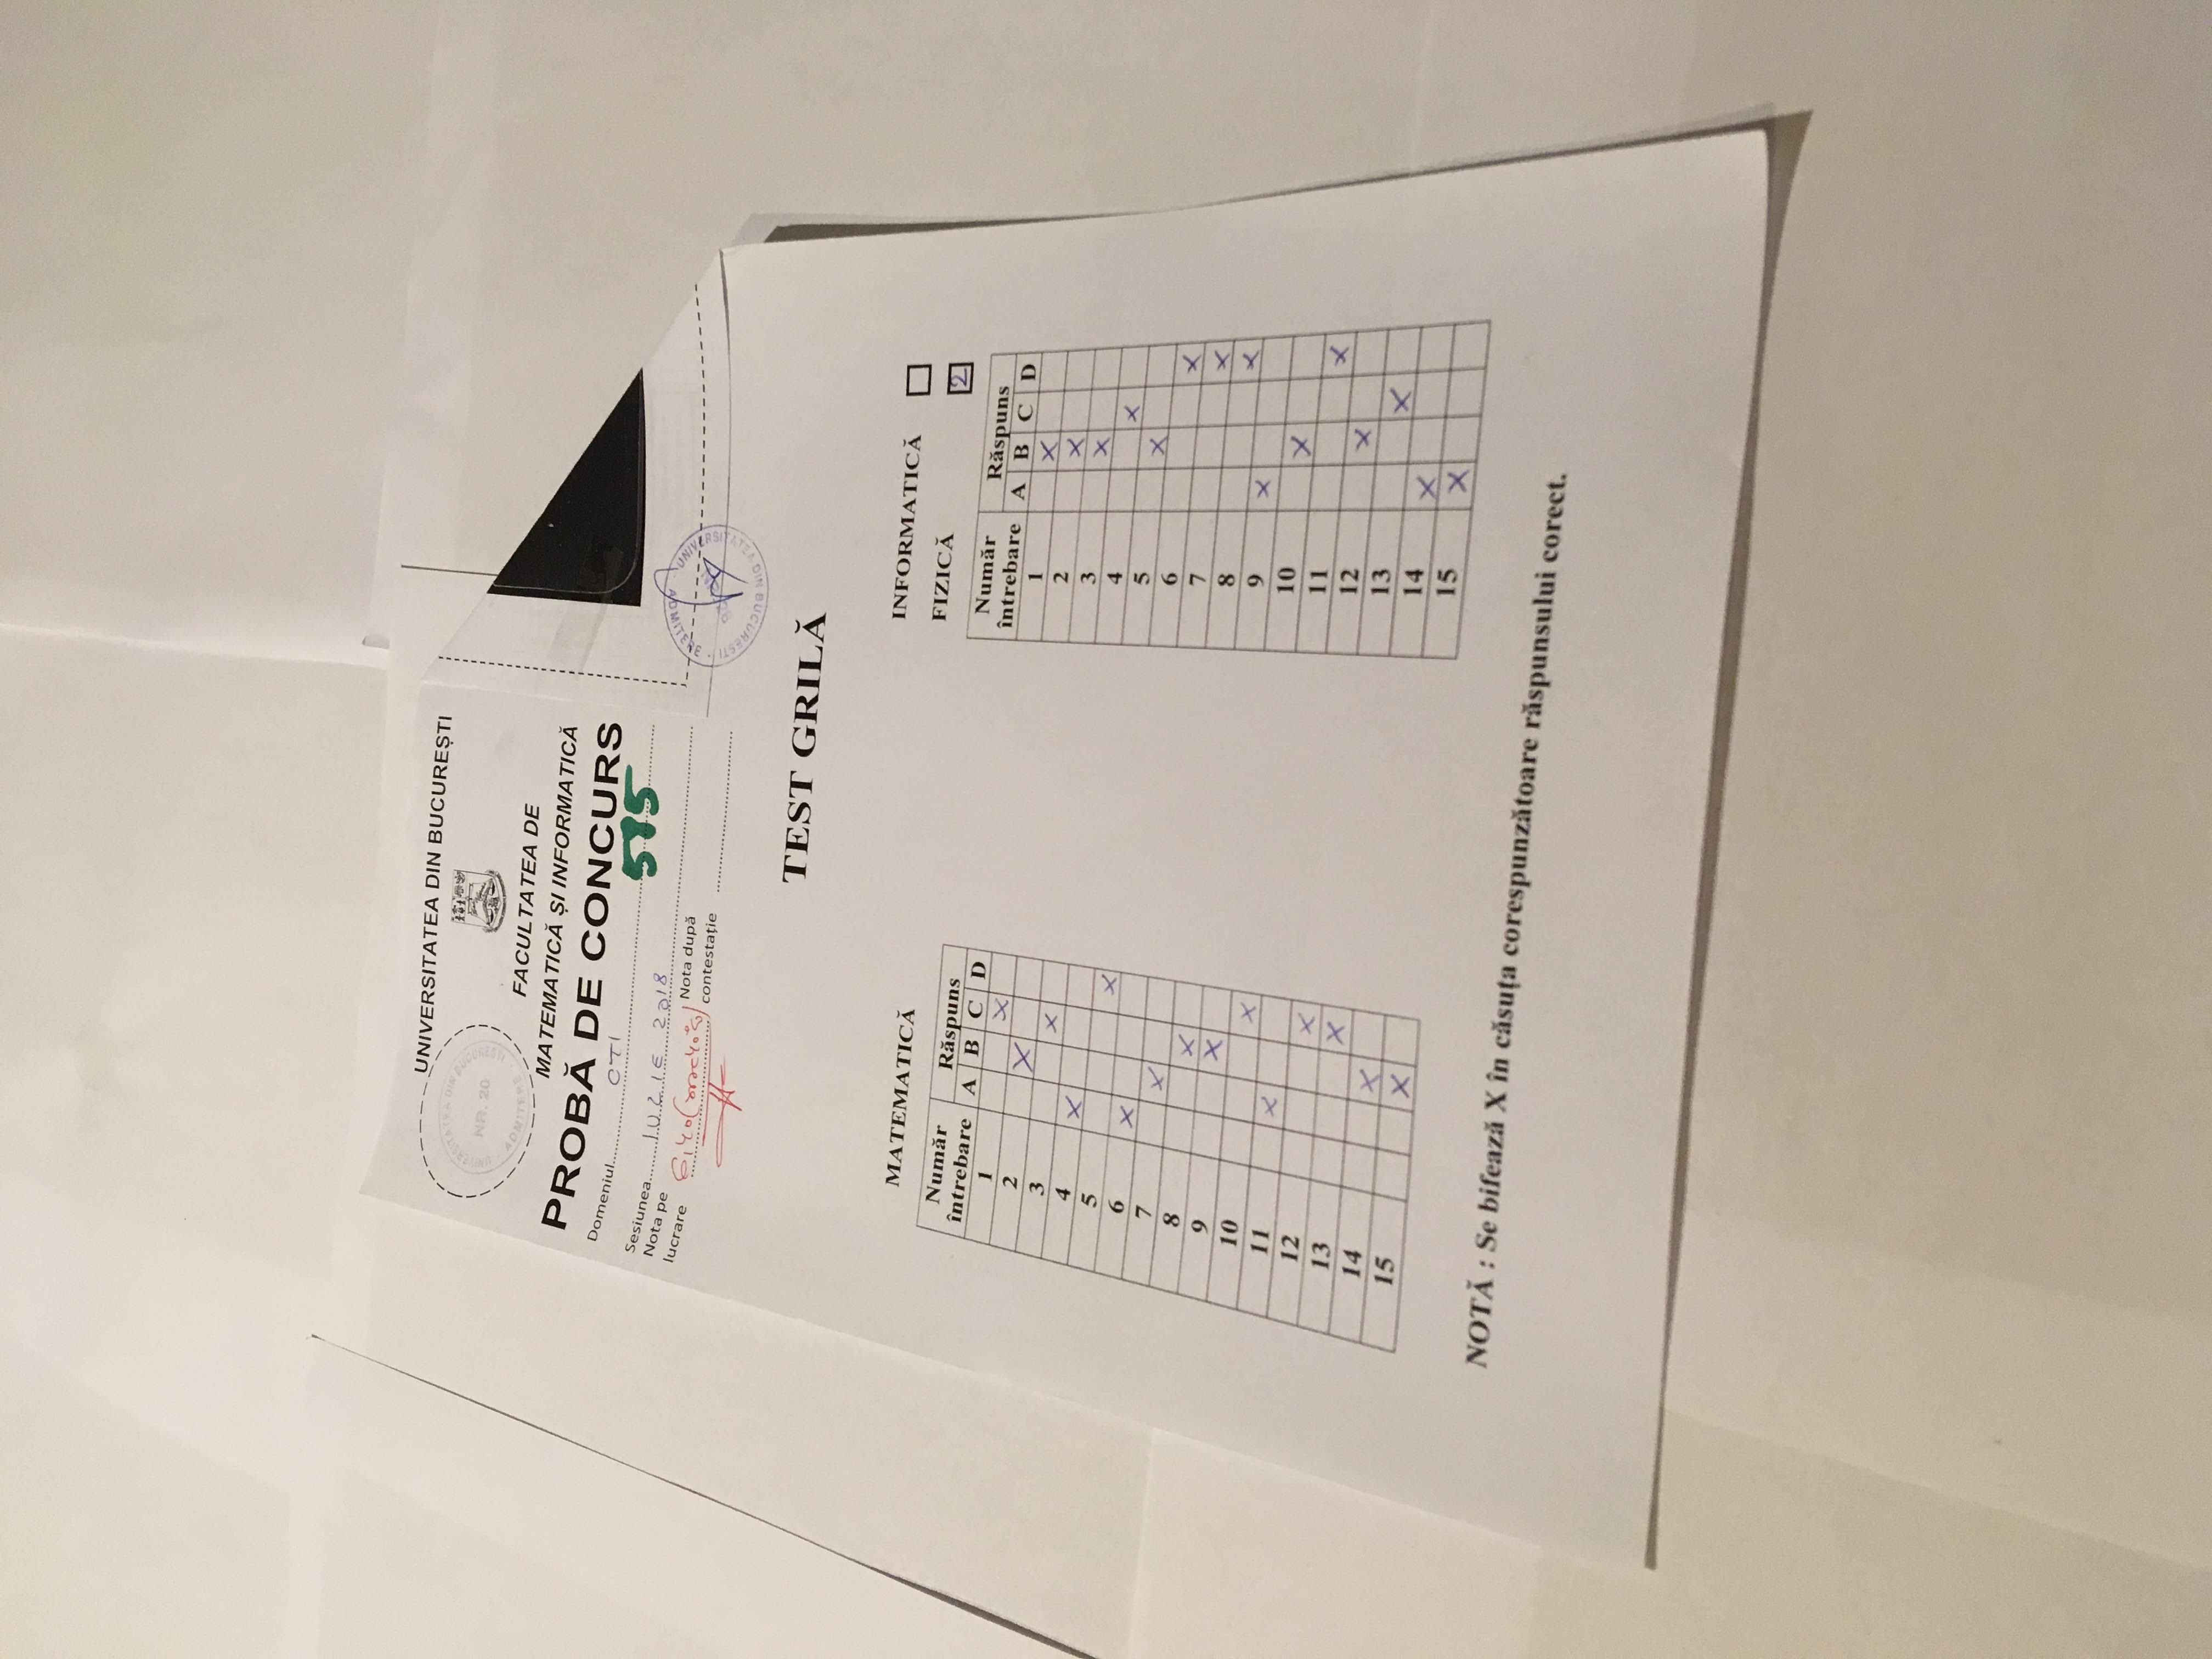 UNIVERSITATEA DIN BUCUREȘTI
UNIVERSITATEA DIN BUCUREȘTI
NR. 20
ADMITERE
FACULTATEA DE
MATEMATICĂ ȘI INFORMATICĂ
PROBĂ DE CONCURS
Domeniul CTI
515
Sesiunea IULIE 2018
Nota pe lucrare 6,40
Nota după contestație
UNIVERSITATEA DIN BUCUREȘTI
ADMITERE
TEST GRILĂ
MATEMATICĂ
Număr întrebare Răspuns
A B C D
1 X
2 X
3 X
4 X
5 X
6 X
7 X
8 X
9 X
10 X
11 X
12 X
13 X
14 X
15 X
INFORMATICĂ
FIZICĂ 2
Număr întrebare Răspuns
A B C D
1 X
2 X
3 X
4 X
5 X
6 X
7 X
8 X
9 X
10 X
11 X
12 X
13 X
14 X
15 X
NOTĂ : Se bifează X în căsuța corespunzătoare răspunsului corect.